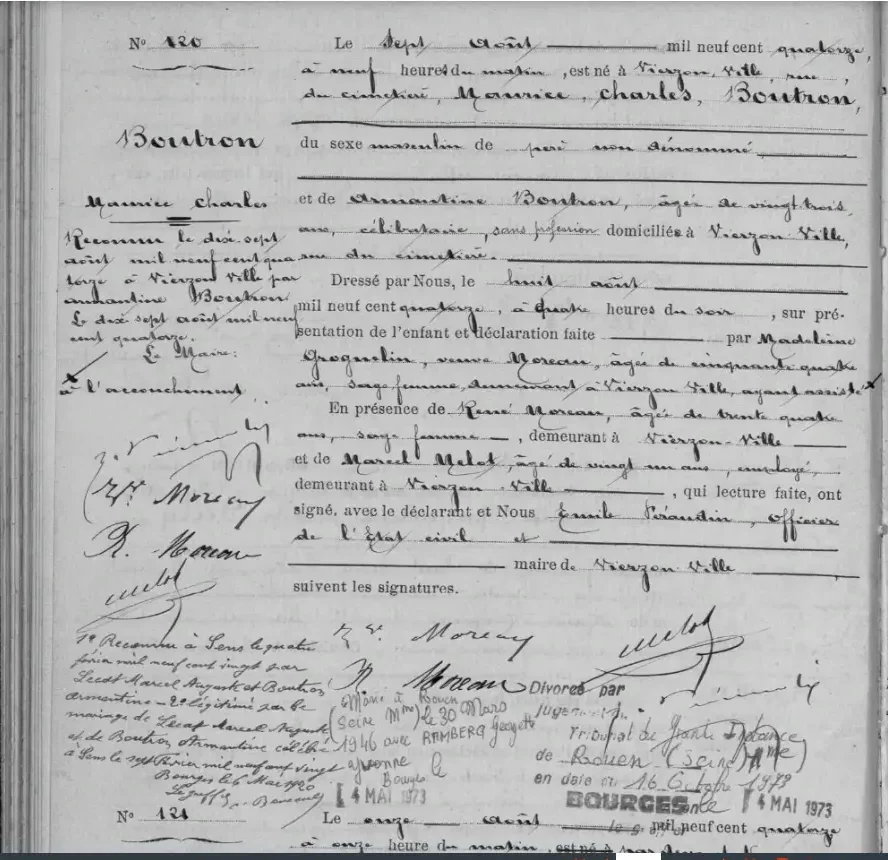 N° 120
Boutron
Maurice Charles
Reconnu le dix sept
août mil neuf cent qua
torze à Vierzon Ville par
Armantine Boutron
Le dix sept août mil neuf
cent quatorze.
Le Maire:
à l'accouchement
Le Sept Août mil neuf cent quatorze,
à neuf heures du matin, est né à Vierzon Ville, rue,
du cimetière, Maurice, Charles, Boutron,
du sexe masculin de père non dénommé
et de Armantine Boutron, âgée de vingt trois
ans, célibataire, sans profession domiciliée à Vierzon Ville,
rue du cimetière.
Dressé par Nous, le huit août
mil neuf cent quatorze, à quatre heures du soir, sur pré-
sentation de l'enfant et déclaration faite par Madeleine
Grognelin, veuve Moreau, âgée de cinquante quatre
ans, sage femme, demeurant à Vierzon Ville, ayant assisté
En présence de René Moreau, âgée de trente quatre
ans, sage femme, demeurant à Vierzon-Ville
et de Marcel Melot, âgé de vingt un ans, employé,
demeurant à Vierzon-Ville, qui lecture faite, ont
signé, avec le déclarant et Nous Emile Péraudin, Officier
de l'Etat civil et
maire de Vierzon Ville
suivent les signatures.
Vve Moreau
R. Moreau
Melot
Vve Moreau
R. Moreau
Melot
1° Reconnu à Sens le quatre
février mil neuf cent vingt par
Marcel Auguste et Boutron
Armantine - 2° légitimé par le
mariage de Marcel Auguste
et de Boutron Armantine célébré
à Sens le sept février mil neuf cent vingt
Bourges le 6 Mai 1920
Le greffier
Marié à Rouen
(Seine Mme) le 30 Mars
1946 avec RAMBERG Georgette
Yvonne
Bourges le
4 MAI 1973
Divorcé par
jugement du
Tribunal de Grande Instance
de Rouen (Seine Mme)
en date du 16 Octobre
BOURGES, le 4 MAI 1973
N° 121
Le onze août mil neuf cent quatorze
à onze heure du matin, est né à